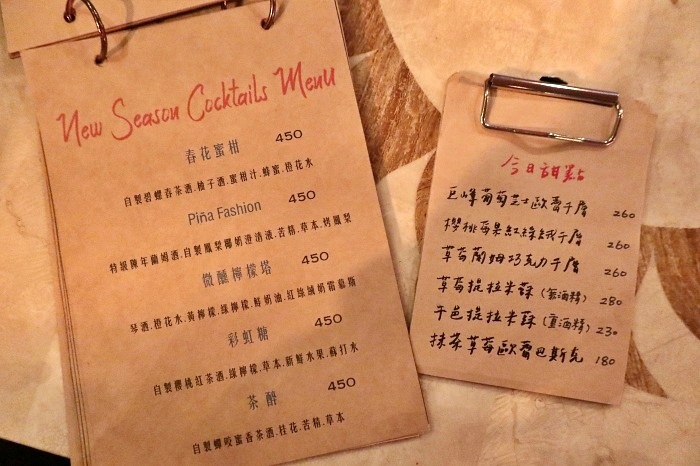 New Season Cocktails Menu
春花蜜柑 450
自製碧螺春茶酒.柚子酒.蜜柑汁.蜂蜜.橙花水
Piña Fashion 450
特級陳年蘭姆酒.自製鳳梨椰奶澄清液.苦精.草本.烤鳳梨
微醺檸檬塔 450
琴酒.橙花水.黃檸檬.綠檸檬.鮮奶油.紅絲絨奶霜慕斯
彩虹糖 450
自製櫻桃紅茶酒.綠檸檬.草本.新鮮水果.蘇打水
茶醉 450
自製蟬咬蜜香茶酒.桂花.苦精.草本
今日甜點
巨峰葡萄芝士歐蕾千層 260
櫻桃莓果紅絲絨千層 260
草莓蘭姆巧克力千層 260
草莓提拉米蘇(無酒精) 280
干邑提拉米蘇(重酒精) 230
抹茶草莓歐蕾巴斯克 180